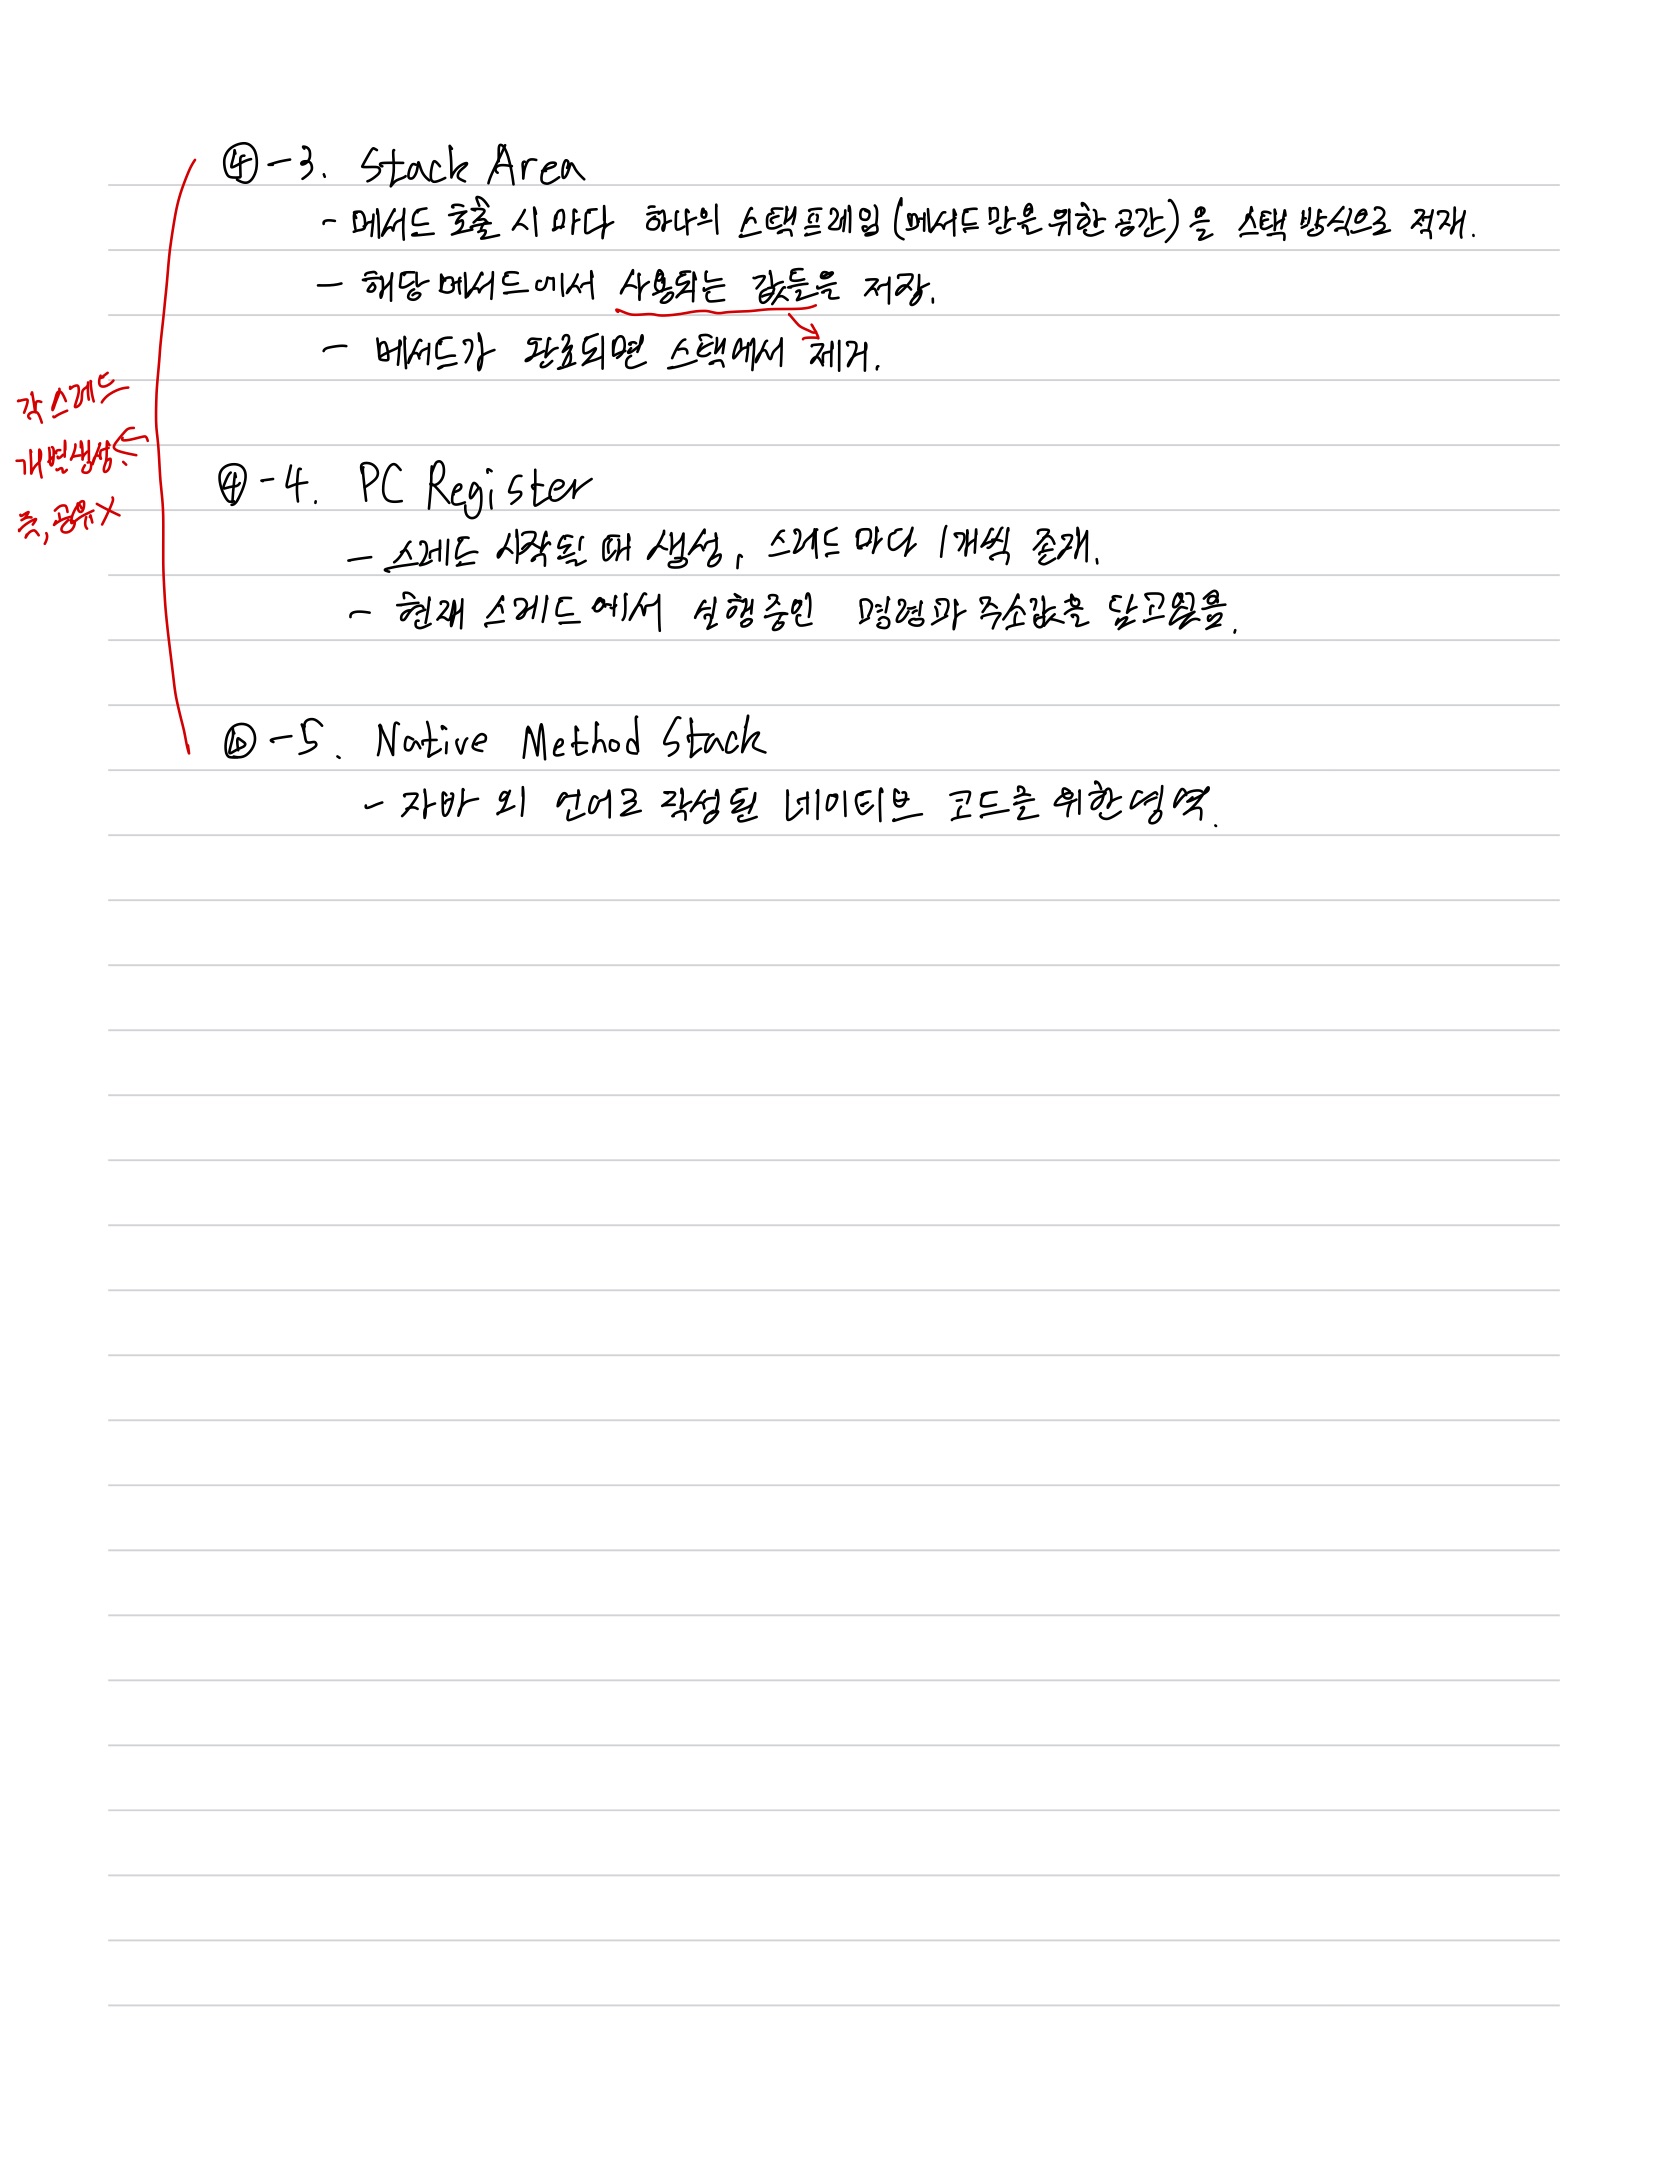 ④-3. Stack Area
- 메서드 호출 시 마다 하나의 스택프레임 (메서드 만을 위한 공간)을 스택 방식으로 적재.
- 해당 메서드에서 사용되는 값들을 저장.
- 메서드가 완료되면 스택에서 제거.
각 스레드
개별생성.
즉, 공유X
④-4. PC Register
- 스레드 시작될 때 생성, 스레드 마다 1개씩 존재.
- 현재 스레드에서 실행중인 명령과 주소값을 담고있음.
④-5. Native Method Stack
- 자바 외 언어로 작성된 네이티브 코드를 위한 영역.